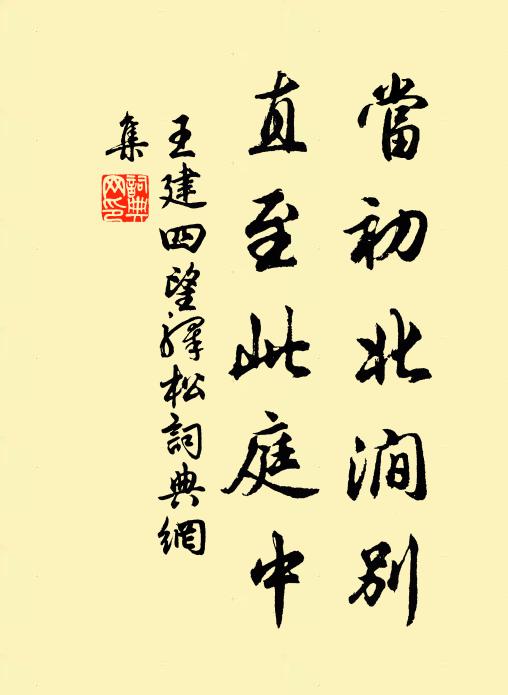 當初北澗別
直至此庭中
王建四望驛松詞典網
集
詞典
网印